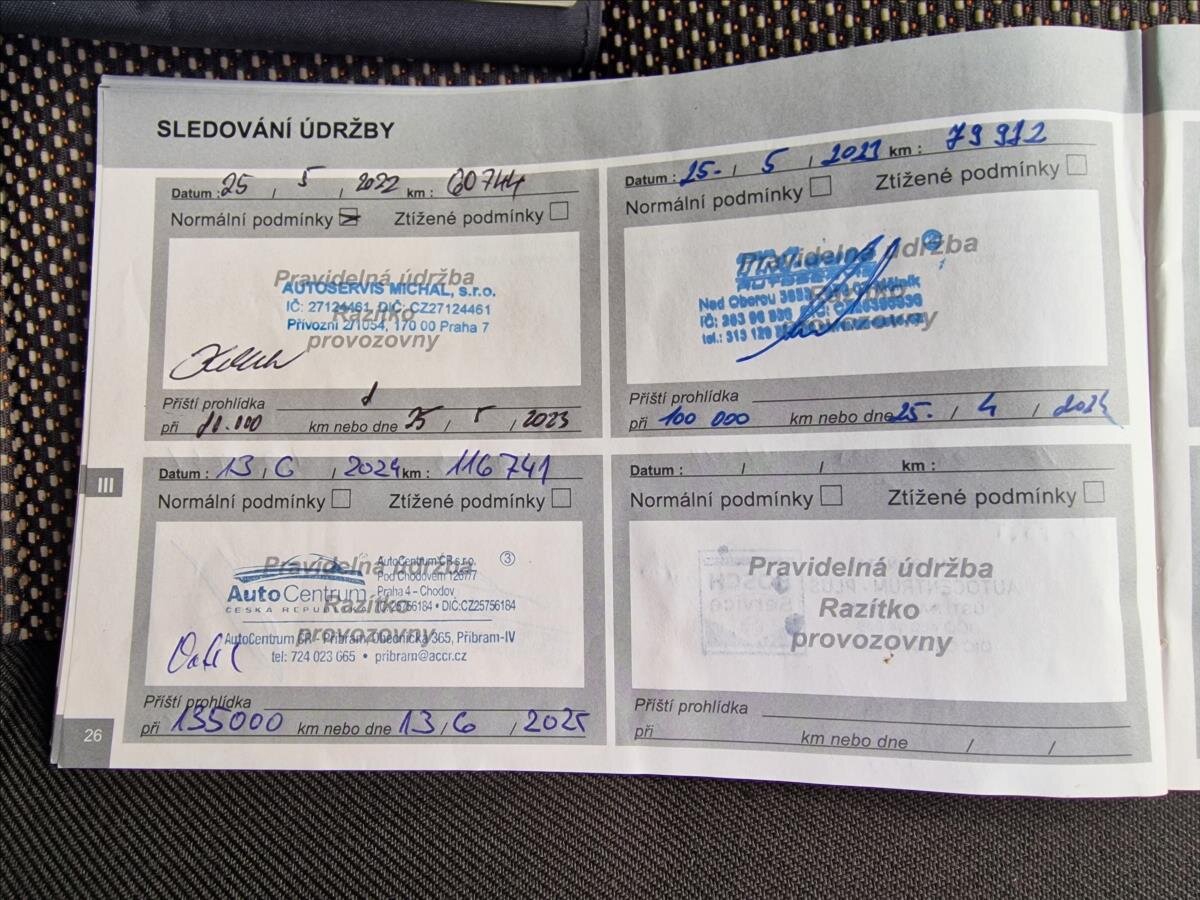 SLEDOVÁNÍ ÚDRŽBY
Datum : 25 / 5 / 2022 km : 60744
Normální podmínky Ztížené podmínky
Pravidelná údržba
Razítko
provozovny
AUTOSERVIS MICHAL, s.r.o.
IČ: 27124461, DIČ: CZ27124461
Přívozní 2/1054, 170 00 Praha 7
Příští prohlídka
při km nebo dne 25 / 5 / 2023
Datum : 25. / 5 / 2023 km : 79 912
Normální podmínky Ztížené podmínky
Pravidelná údržba
Razítko
provozovny
Nad Oborou
IČ:
tel.: 313
Příští prohlídka
při 100 000 km nebo dne 25. / 4 / 2024
III
Datum : 13 / 6 / 2024 km : 116741
Normální podmínky Ztížené podmínky
Pravidelná údržba
Razítko
provozovny
AutoCentrum ČR s.r.o.
Pod Chodovem 126/77
Praha 4 - Chodov
IČ:25756184 • DIČ:CZ25756184
3
Auto Centrum
ČESKÁ REPUBLIKA
AutoCentrum ČR - Příbram, Obecnická 365, Příbram-IV
tel: 724 023 665 • pribram@accr.cz
Příští prohlídka
při 135000 km nebo dne 13 / 6 / 2025
Datum : / / km :
Normální podmínky Ztížené podmínky
Pravidelná údržba
Razítko
provozovny
Příští prohlídka
při km nebo dne / /
26